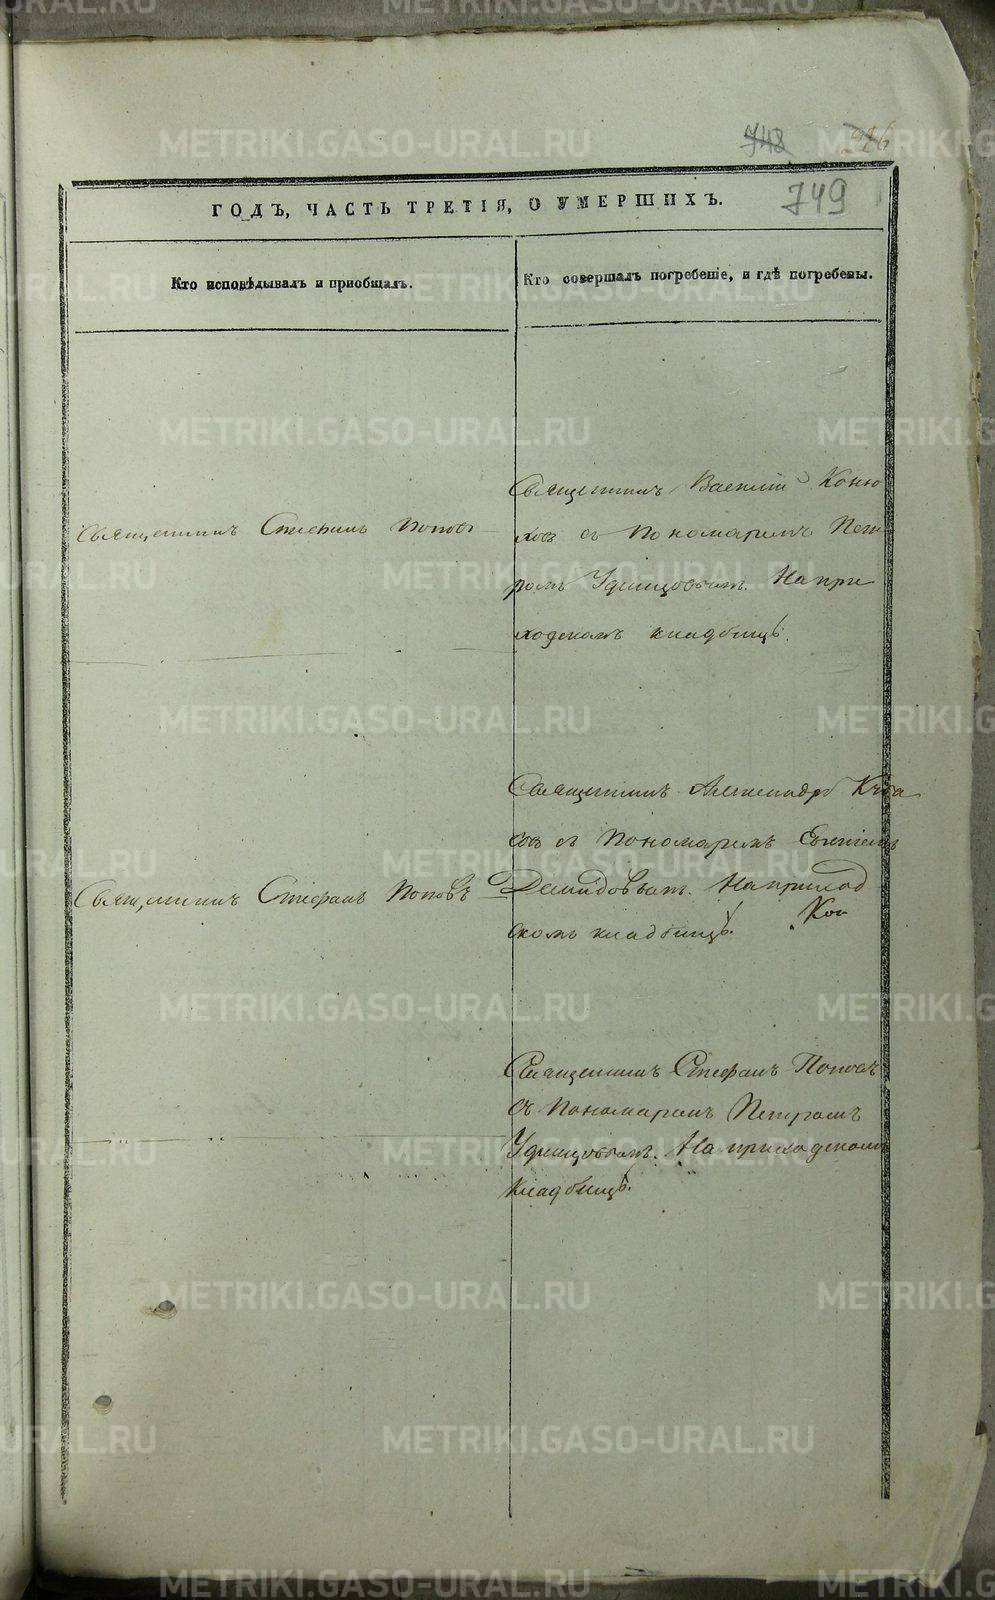 748 926
749
ГОДЪ, ЧАСТЬ ТРЕТІЯ, О УМЕРШИХЪ.
Кто исповѣдывалъ и пріобщалъ.
Кто совершалъ погребеніе, и гдѣ погребены.
Священникъ Стефанъ Поповъ
Священникъ Василій Коню
ховъ съ Пономаремъ Пет
ромъ Удинцовымъ. На при
ходскомъ кладбищѣ.
Священникъ Стефанъ Поповъ
Священникъ Александръ
съ Пономаремъ Евгеніемъ
Демидовымъ. На приход
скомъ кладбищѣ.
Священникъ Стефанъ Поповъ
съ Пономаремъ Петромъ
Удинцовымъ. На приходскомъ
кладбищѣ.
METRIKI.GASO-URAL.RU